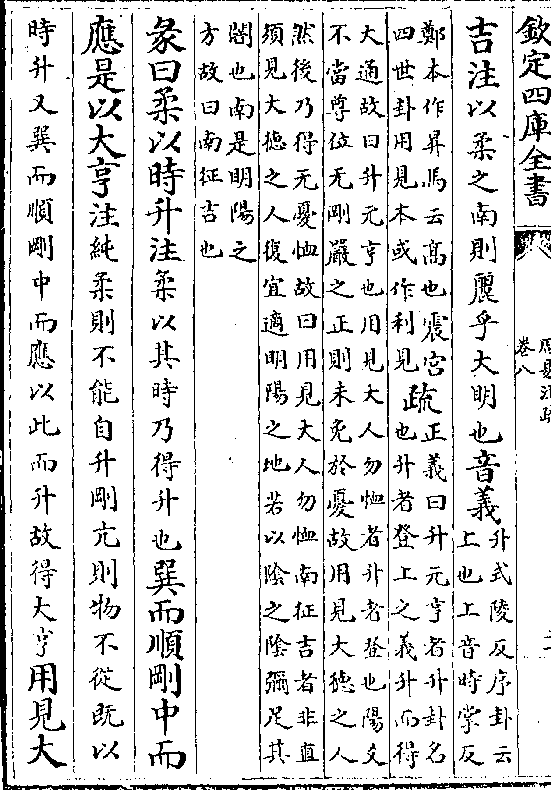 欽定四庫全書
周易注疏
卷八
二
吉注以柔之南則麗乎大明也音義
升式陵反序卦云
上也上音時掌反
鄭本作昇馬云髙也震宮
四世卦用見本或作利見
疏
正義曰升元亨者升卦名
也升者登上之義升而得
大通故曰升元亨也用見大人勿恤者升者登也陽爻
不當尊位无剛嚴之正則未免於憂故用見大德之人
然後乃得无憂恤故曰用見大人勿恤南征吉者非直
須見大德之人復宜適明陽之地若以陰之陰彌足其
闇也南是明陽之
方故曰南征吉也
彖曰柔以時升注柔以其時乃得升也巽而順剛中而
應是以大亨注純柔則不能自升剛亢則物不從既以
時升又巽而順剛中而應以此而升故得大亨用見大